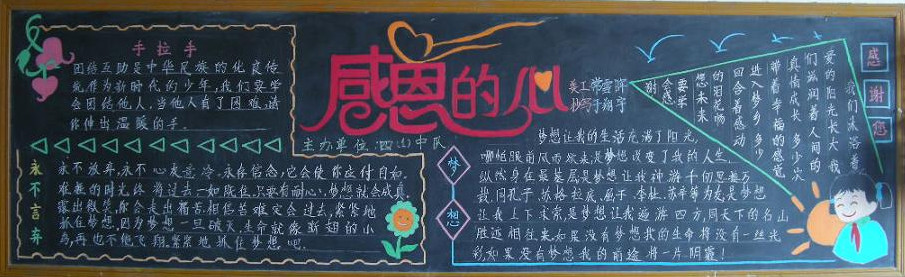 手拉手
团结互助是中华民族的优良传
统,作为新时代的少年,我们要学
会团结他人,当他人有了困难,请
你伸出温暖的手。
感恩的心
美工
抄写
主办单位:四(4)中队
永不言弃
永不放弃,永不心灰意冷。永存信念,它会使你应付自如。
难熬的时光终将过去一如既往,只要有耐心,梦想就会成真。
露出微笑,你会走出痛苦,相信苦难定会过去,紧紧地
抓住梦想,因为梦想一旦破灭,生命就像断翅的小
鸟,再也不能飞翔,紧紧地抓住梦想吧。
梦想
梦想让我的生活充满了阳光,
哪怕眼前风雨欲来,是梦想改变了我的人生,
纵然身在最基层是梦想让我神游千仞,思接万
载,同孔子、苏格拉底、屈子、李杜、苏辛等为友,是梦想
让我上下求索,是梦想让我遍游四方,同天下的名山
胜迹相往来,如果没有梦想我的生命将没有一丝光
彩,如果没有梦想我的前途将一片阴霾!
感谢您
我们沐浴着
爱的阳光长大
我们滋润着人间的
真情成长
多少次
带着幸福的感觉
进入梦乡
多少
回含着感动
的泪花畅
想未来
要学
会感
谢